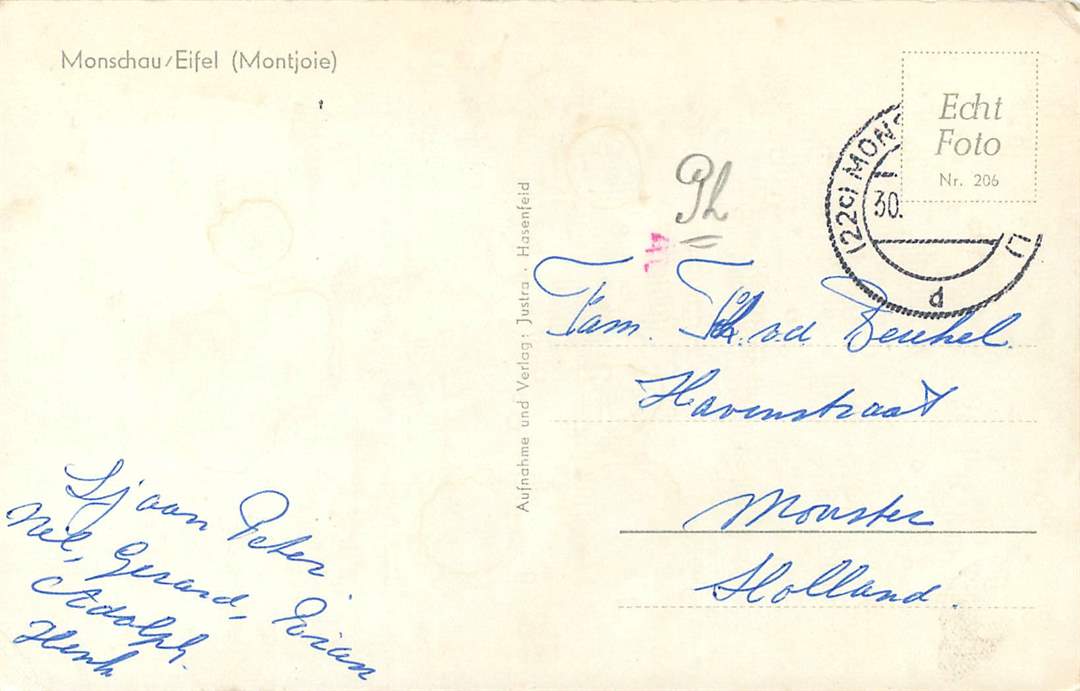 Monschau/Eifel (Montjoie)
Echt
Foto
Nr. 206
(22c) MONS
30.
d
Ph
Aufnahme und Verlag: Justra · Hasenfeld
Fam. Th. v.d. Beukel.
Havenstraat
Monster
Holland.
Sjaan Peter
Nel, Gerard, Rian
Adolph.
Henk